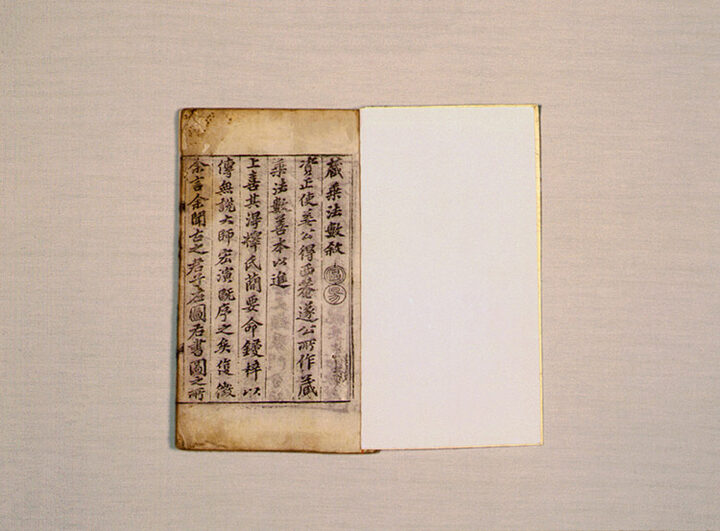 藏乗法數敘
資正使姜公得西菴遂公所作藏
乗法數善本以進
上喜其得釋氏蕳要命鋟梓以
傳無說大師宏演旣序之矣復徵
余言余聞古之君子左圖右書圖之所